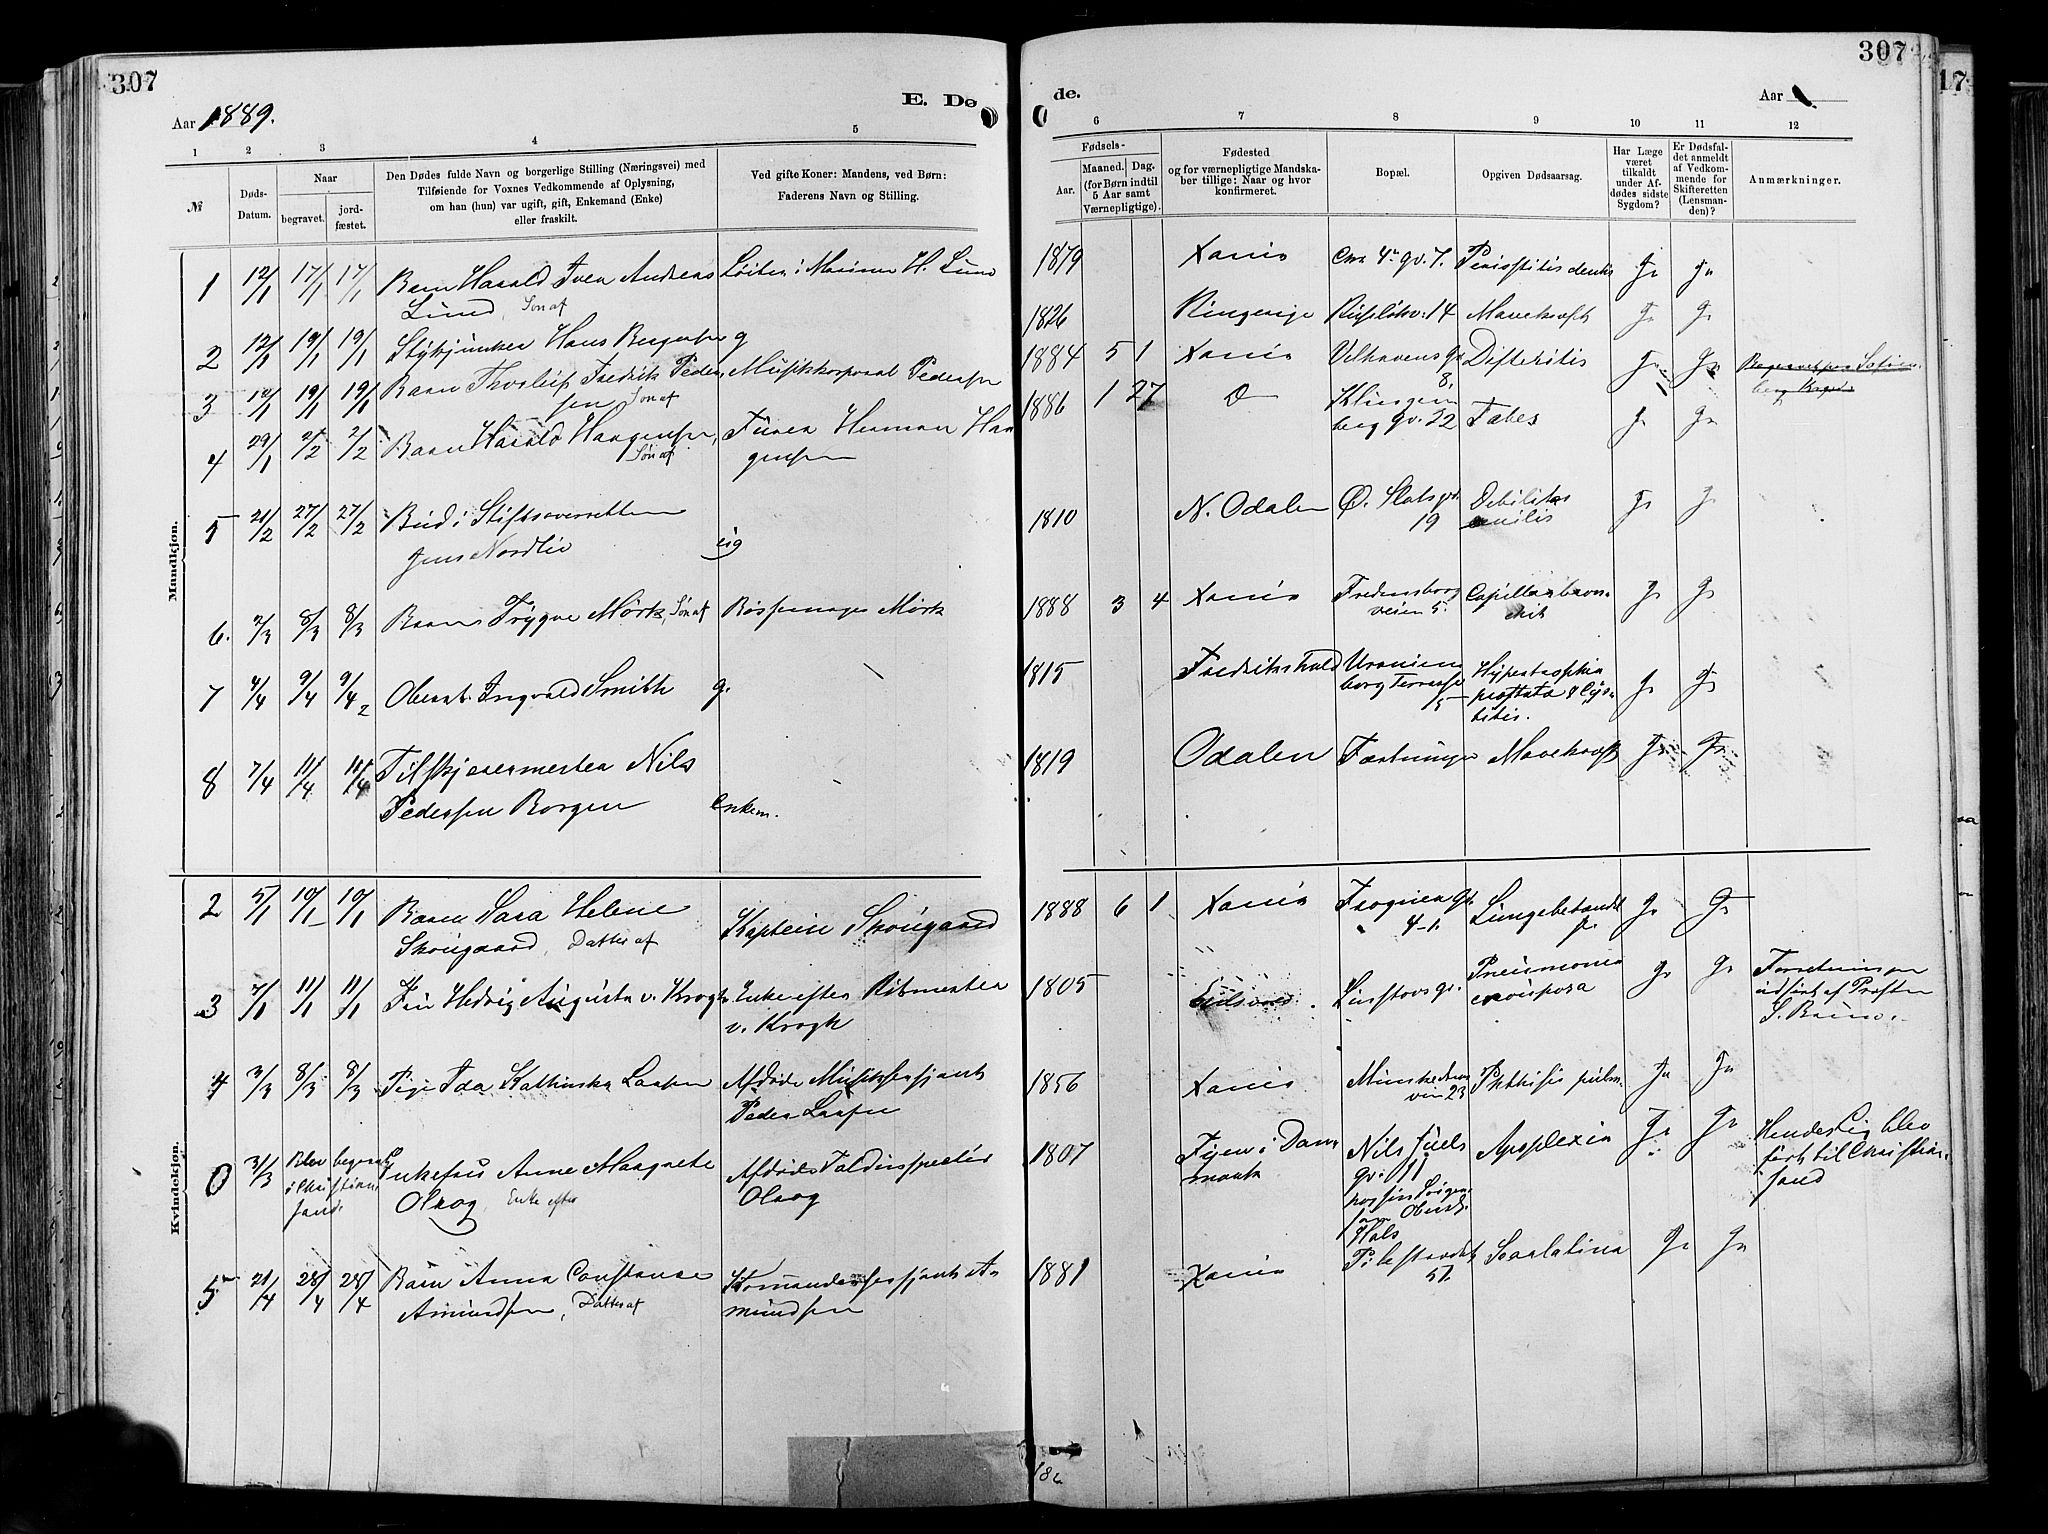 307
307
17
Aar 1889.
E. Dø
de.
Aar
1 2 3 4 5
6 7 8 9 10 11 12
№
Døds-
Datum.
Naar
begravet.
jord-
fæstet.
Den Dødes fulde Navn og borgerlige Stilling (Næringsvei) med
Tilføiende for Voxnes Vedkommende af Oplysning,
om han (hun) var ugift, gift, Enkemand (Enke)
eller fraskilt.
Ved gifte Koner: Mandens, ved Børn:
Faderens Navn og Stilling.
Fødsels-
Aar.
Maaned.
Dag.
(for Børn indtil
5 Aar samt
Værnepligtige).
Fødested
og for værnepligtige Mandska-
ber tillige: Naar og hvor
konfirmeret.
Bopæl.
Opgiven Dødsaarsag.
Har Læge
været
tilkaldt
under Af-
dødes sidste
Sygdom?
Er Dødsfal-
det anmeldt
af Vedkom-
mende for
Skifteretten
(Lensman-
den)?
Anmærkninger.
Mandkjøn.
1 12/1 17/1 17/1 Barn Harald Iver Andreas
Lund, Søn af
Løitn. i Marinen H. Lund
1879 Xania gv. 7. dentis Ja ja
2 12/1 19/1 19/1 Stykjunker Hans Bergersen g
1826 Ringerige 14 Mavekræft Ja Ja
3 12/1 19/1 19/1 Barn Thorleif Fredrik Peder-
sen Søn af
Musikkorporal Pedersen
1884 5 1 Xania Velhavens gd
8. Difteritis Ja Ja
Begravet paa Sofien-
berg
4 29/1 2/2 2/2 Barn Harald Haagensen,
Søn af
Furer Herman Haa
gensen
1886 1 27 Klingen
berg gv. 22 Tabes Ja Ja
5 21/2 27/2 27/2 Bud i Stiftsoverretten
Jens Nordlie
ug
1810 N. Odalen Ø. Slotsgd.
19 Debilitas
senilis Ja Ja
6. 2/3 8/3 8/3 Barn Trygve Mørk, Søn af
Bøssemager Mørk
1888 3 4 Xania Fredensborg
veien 5. Capillærbron-
chit Ja Ja
7 4/4 9/4 9/4 Oberst. Ingvald Smith g.
1815 Fredrikshald Uranien
borg Terrasse
5 Hypertrophia
prostata & Cys-
titis. Ja Ja
8 7/4 11/4 11/4 Tilskjærermester Nils
Pedersen Borgen
Enkem.
1819 Odalen Fæstningen Mavekræft Ja Ja
Kvindekjøn.
2 5/1 10/1 10/1 Barn Sara Helene
Skougaard, Datter af
Kaptein Skougaard
1888 6 1 Xania Frognerg.
4-1. Lungebetændel
se Ja Ja
3 7/1 11/1 11/1 Fru Hedvig Augusta v. Krogh
Enke efter Ritmester
v. Krogh
1805 Eidsvold. Linstovs gv. Pneumonia
crouposa Ja Ja
Forretningen
udført af Presten
S. Bruun.
4 3/3 8/3 8/3 Pige Ida Kathinka Larsen
Afdøde Musiksersjant
Peder Larsen
1856 Xania Munkedams
veien 23 Phthisis pulm. Ja Ja
0 3/3 Blev begravet
i Christian
sand.
Enkefru Anne Margrete
Olrog, Enke efter
Afdøde Toldinspektør
Olrog
1807 Fyen i Dan
mark Nils Juels
gv. 11
hos sin Svigers.
Oberstl.
Hals
Apoplexia Ja Ja
Hendes Lig blev
ført til Christian-
sand
5 21/4 25/4 25/4 Barn Anna Constance
Amundsen, Datter af
Komandersersjant A-
mundsen
1881 Xania Pilestrædet
57. Scarlatina Ja Ja